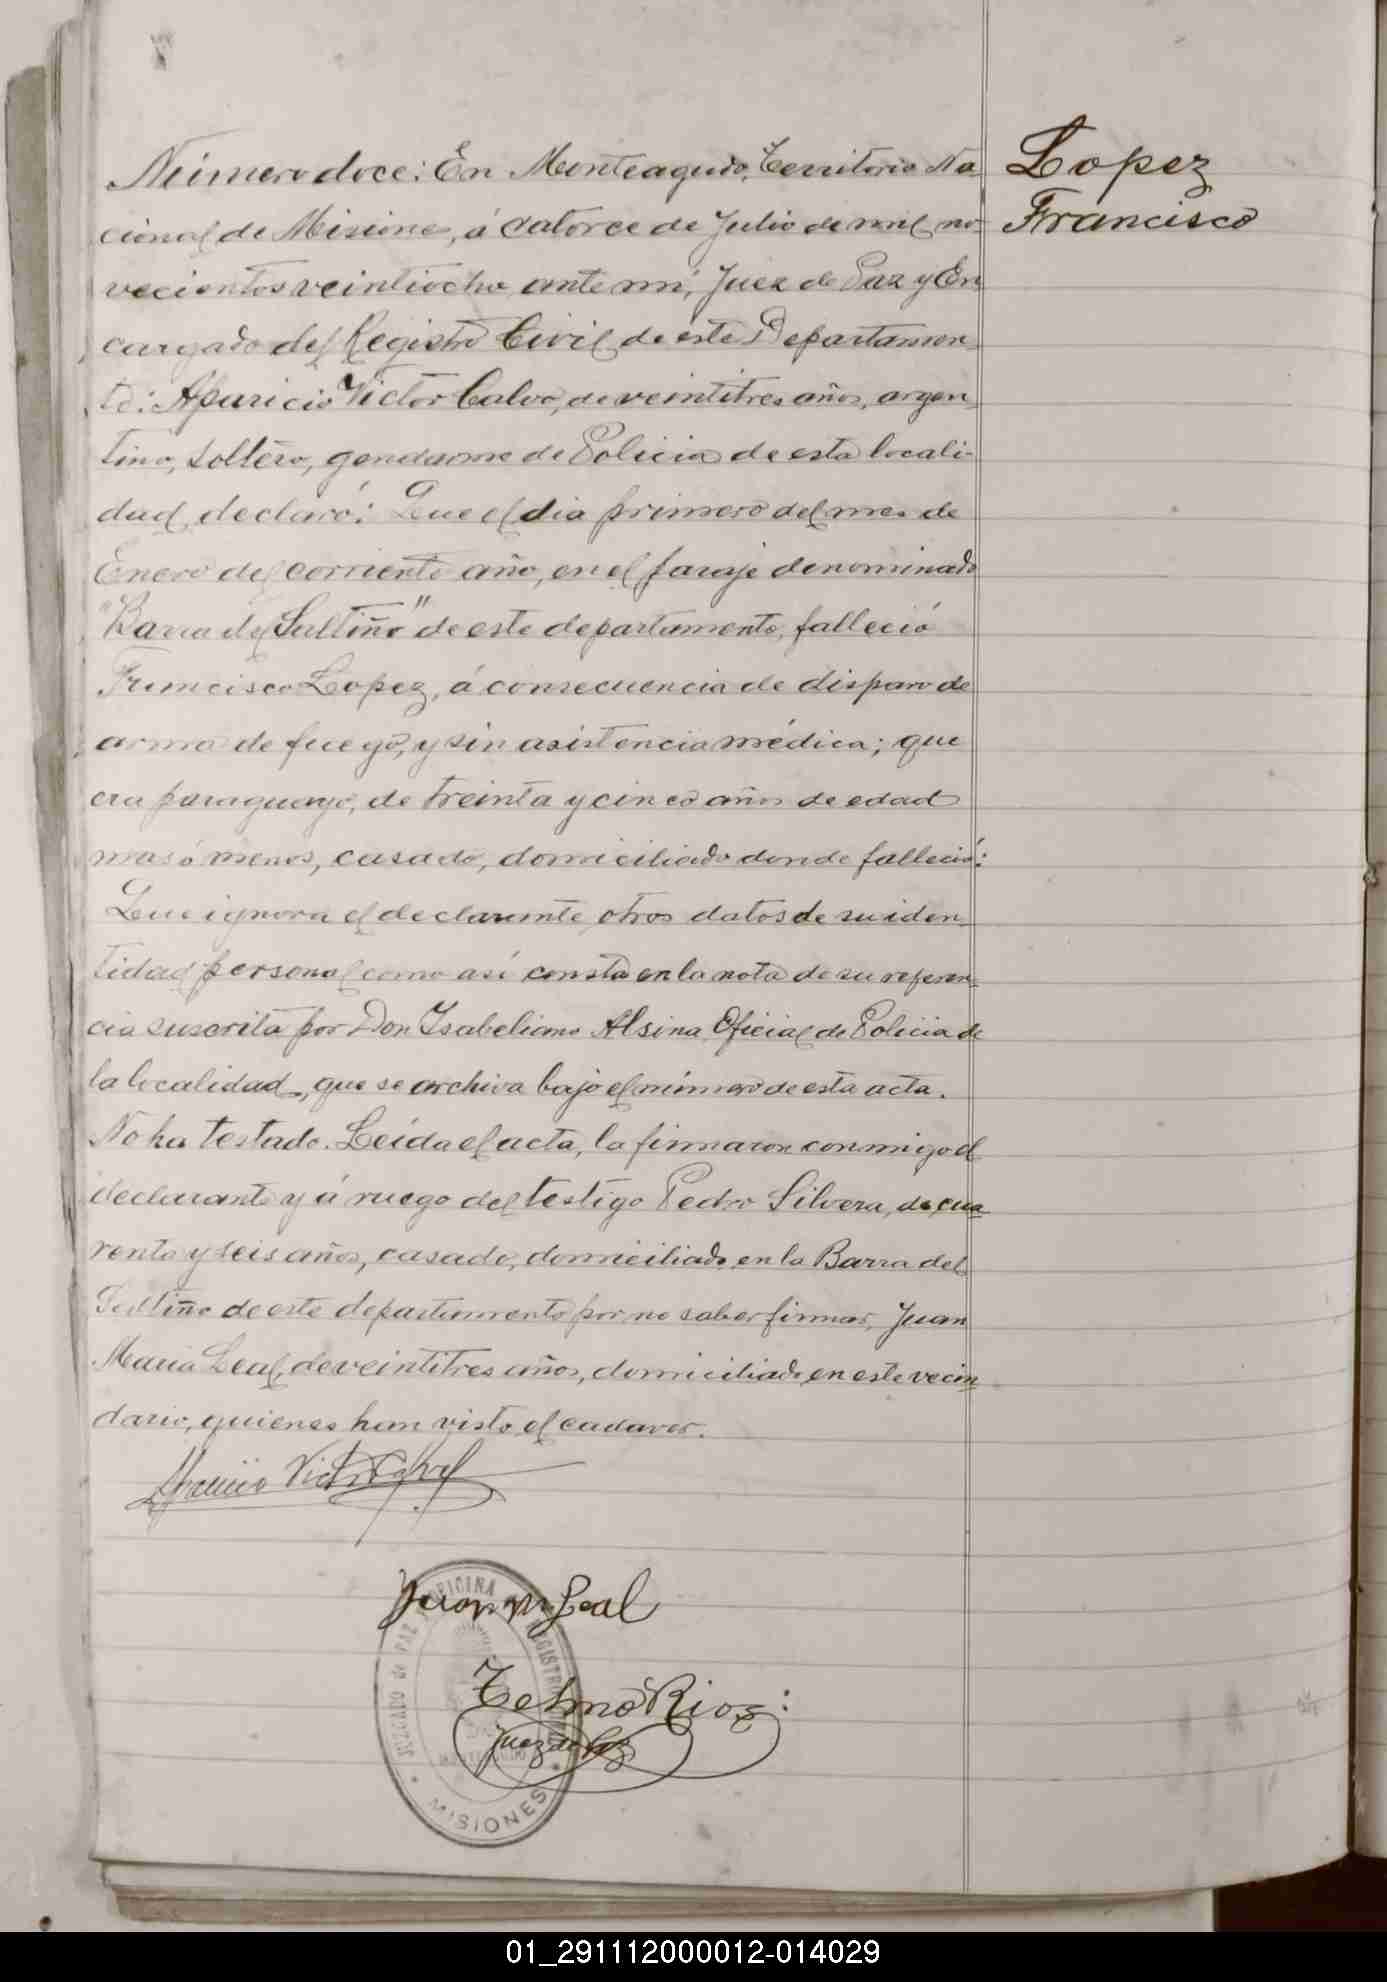 Lopez
Francisco
Número doce: En Monteagudo, Territorio Na-
cional de Misiones, á catorce de Julio de mil no-
vecientos veintiocho, ante mí, Juez de Paz y En-
cargado del Registro Civil de este Departamen-
to: Aparicio Victor Calvo, de veintitres años, argen-
tino, soltero, gendarme de Policia de esta locali-
dad, declaró: Que el dia primero del mes de
Enero del corriente año, en el paraje denominado
"Barra del Saltiño" de este departamento, falleció
Francisco Lopez, á consecuencia de disparo de
arma de fuego, y sin asistencia médica; que
era paraguayo, de treinta y cinco años de edad
mas ó menos, casado, domiciliado donde falleció:
Que ignora el declarante otros datos de su iden-
tidad personal como así consta en la nota de su referen-
cia suscrita por Don Isabeliano Alsina Oficial de Policia de
la localidad, que se archiva bajo el número de esta acta.
No ha testado. Leída el acta, la firmaron conmigo el
declarante y á ruego del testigo Pedro Silvera, de cua-
renta y seis años, casado, domiciliado en la Barra del
Saltiño de este departamento por no saber firmar, Juan
Maria Leal, de veintitres años, domiciliado en este vecin-
dario, quienes han visto el cadaver.
Aparicio Victor Calvo
Juan M Leal
Telmo Rios:
Juez de Paz
JUZGADO de PAZ OFICINA REGISTRO
MISIONES
01_291112000012-014029